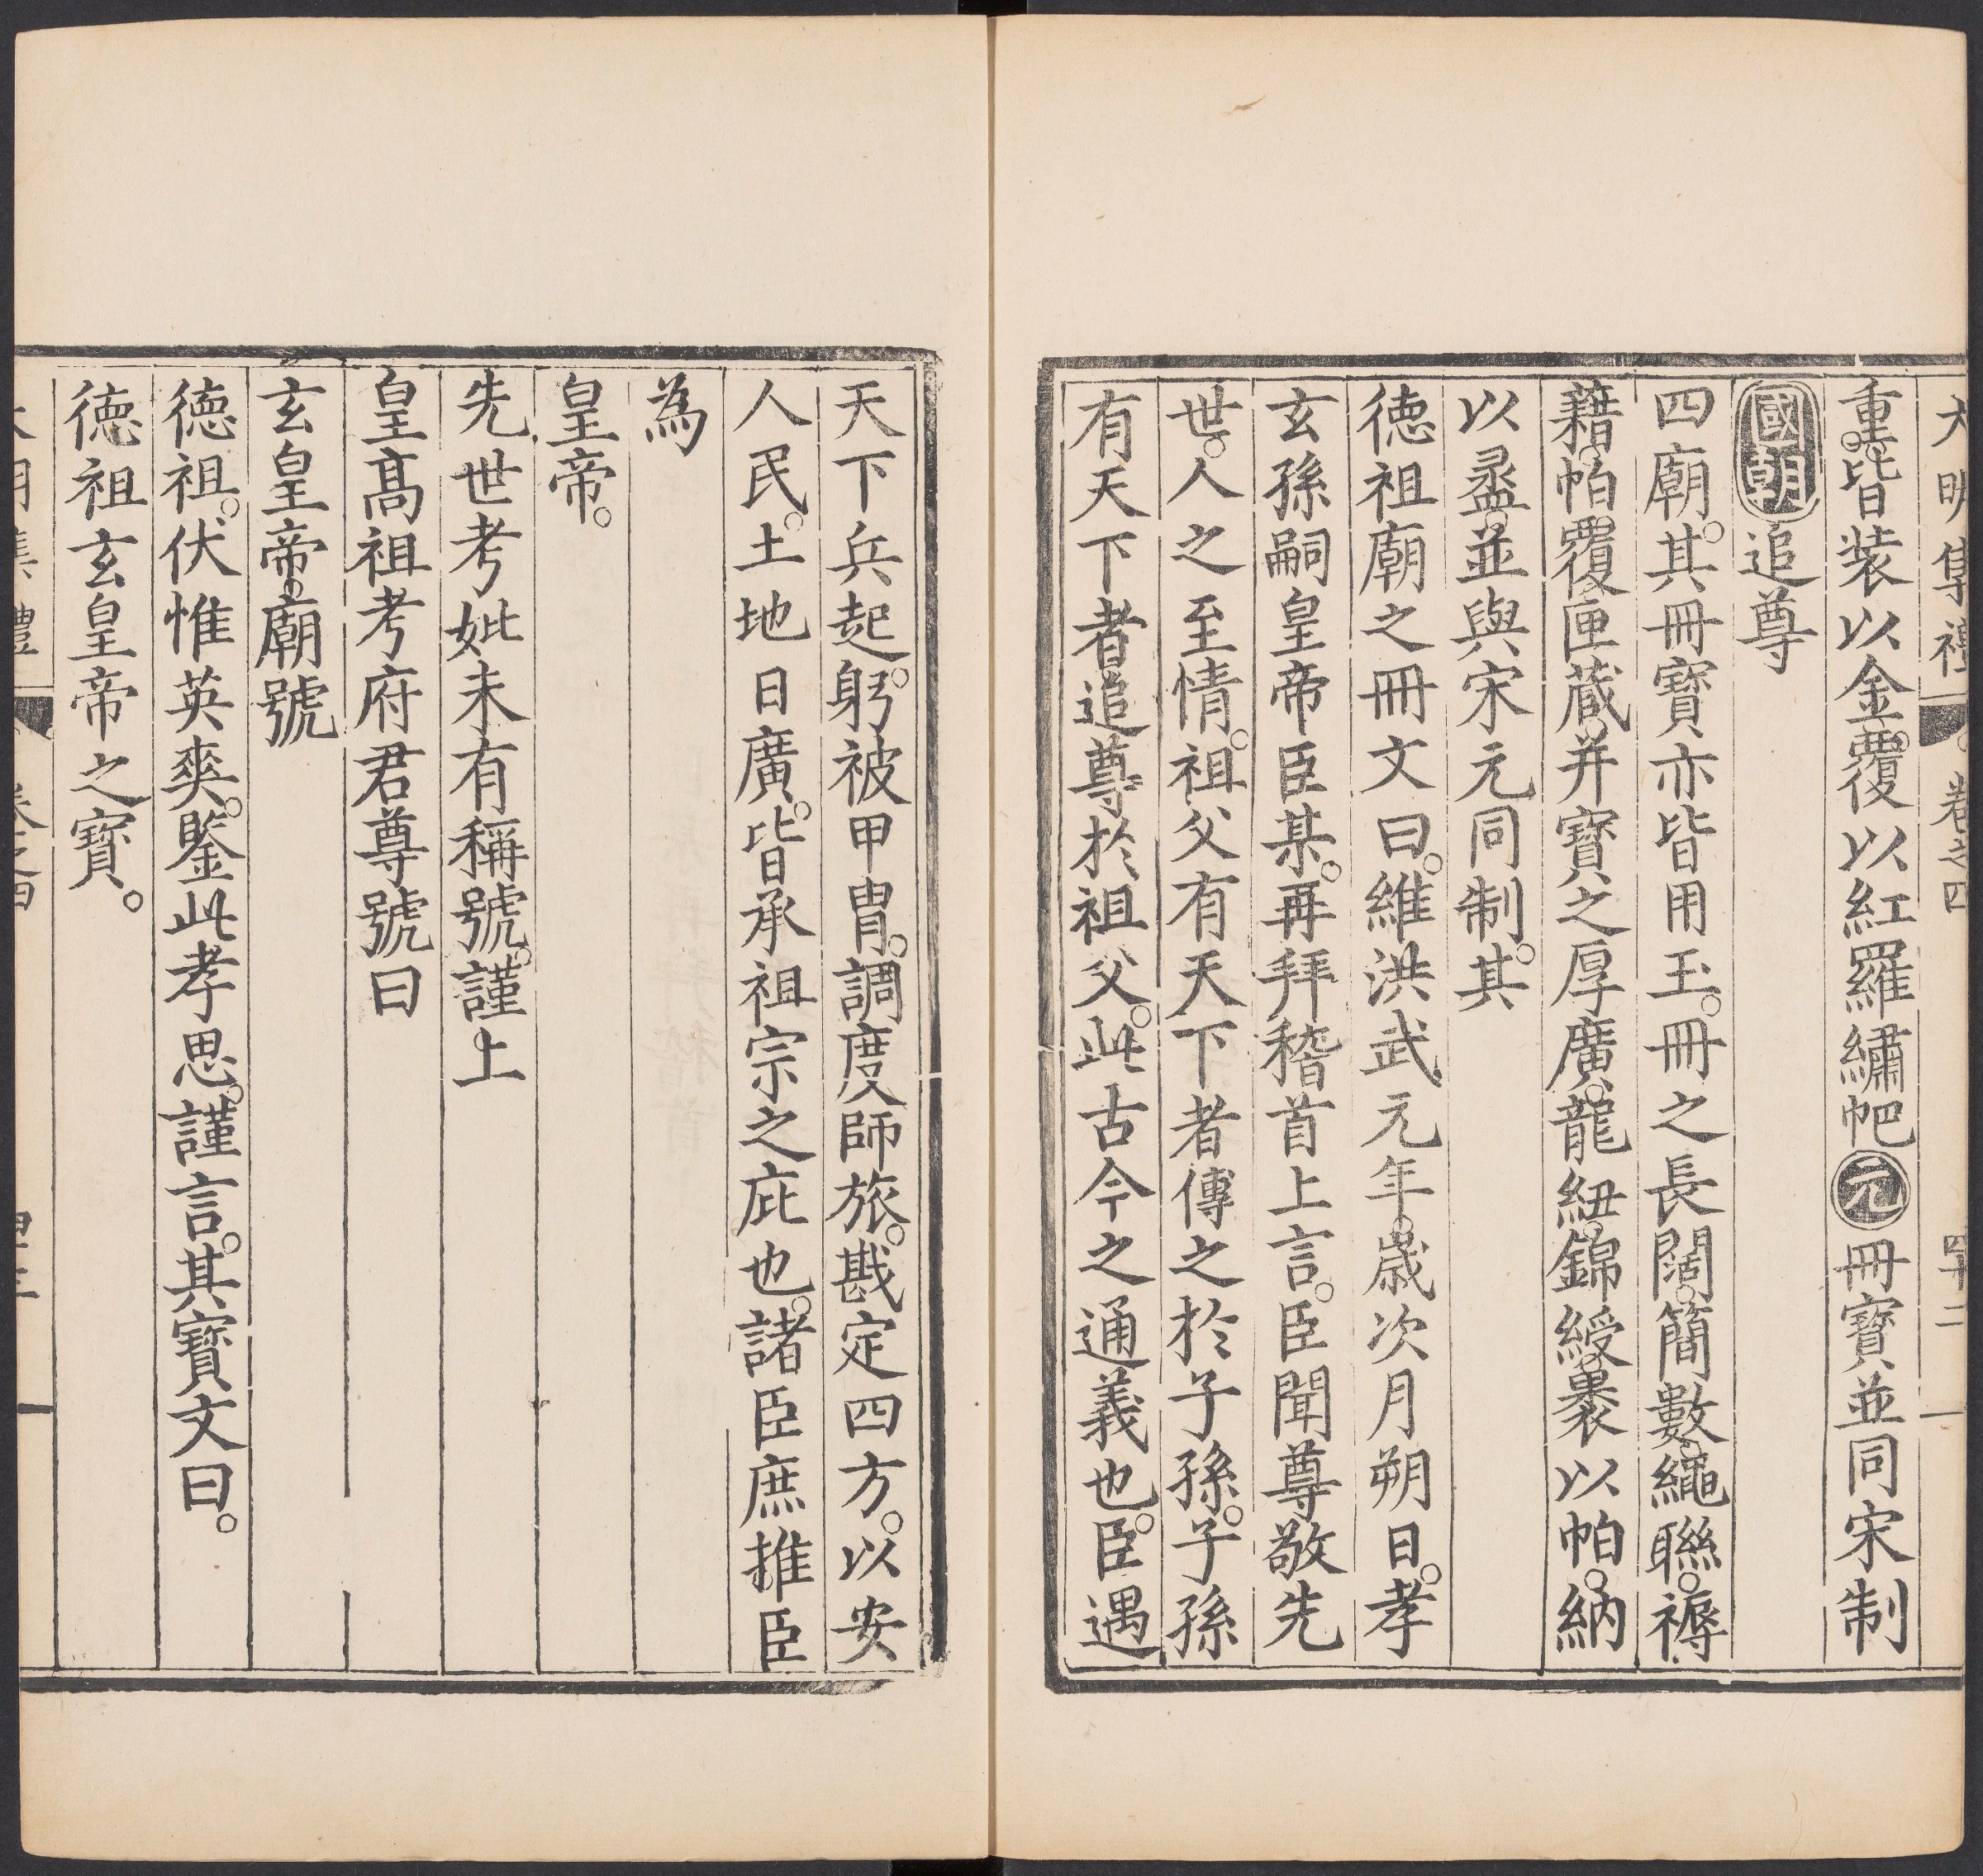 大明集禮 卷之四 四十二
重。皆装以金。覆以紅羅繡帊元冊寳並同宋制
國朝追尊
四廟。其冊寳亦皆用玉。冊之長闊。簡數。繩聯。褥
藉。帕覆匣蔵。并寳之厚廣。龍紐。錦綬。裹以帕。納
以盝。並與宋元同制。其
徳祖廟之冊文曰。維洪武元年。歲次月朔日。孝
玄孫嗣皇帝臣某。再拜稽首上言。臣聞尊敬先
世。人之至情。祖父有天下者傳之於子孫。子孫
有天下者追尊於祖父。此古今之通義也。臣遇
天下兵起。躬被甲冑。調度師旅。戡定四方。以安
人民。土地日廣。皆承祖宗之庇也。諸臣庶推臣
為
皇帝。
先世考妣未有稱號。謹上
皇髙祖考府君尊號曰
玄皇帝。廟號
徳祖。伏惟英爽。鑒此孝思。謹言。其寳文曰。
徳祖玄皇帝之寳。